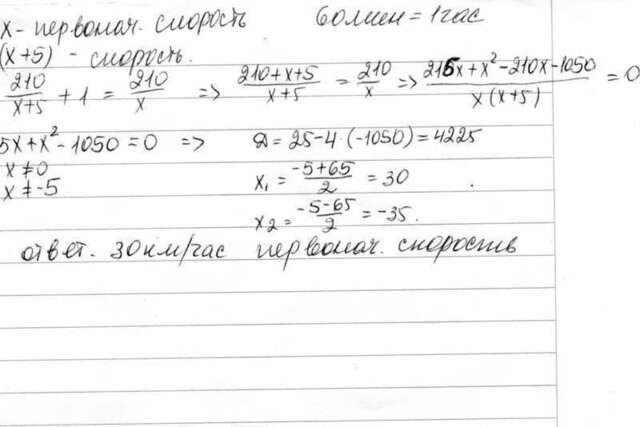 x - первонач. скорость 60 мин = 1 час
(x+5) - скорость.
210/(x+5) + 1 = 210/x => (210+x+5)/(x+5) = 210/x => (215x+x²-210x-1050)/(x(x+5)) = 0
5x+x²-1050=0 => Д = 25-4·(-1050)=4225
x≠0 x₁ = (-5+65)/2 = 30
x≠-5 x₂ = (-5-65)/2 = -35.
ответ. 30 км/час первонач. скорость